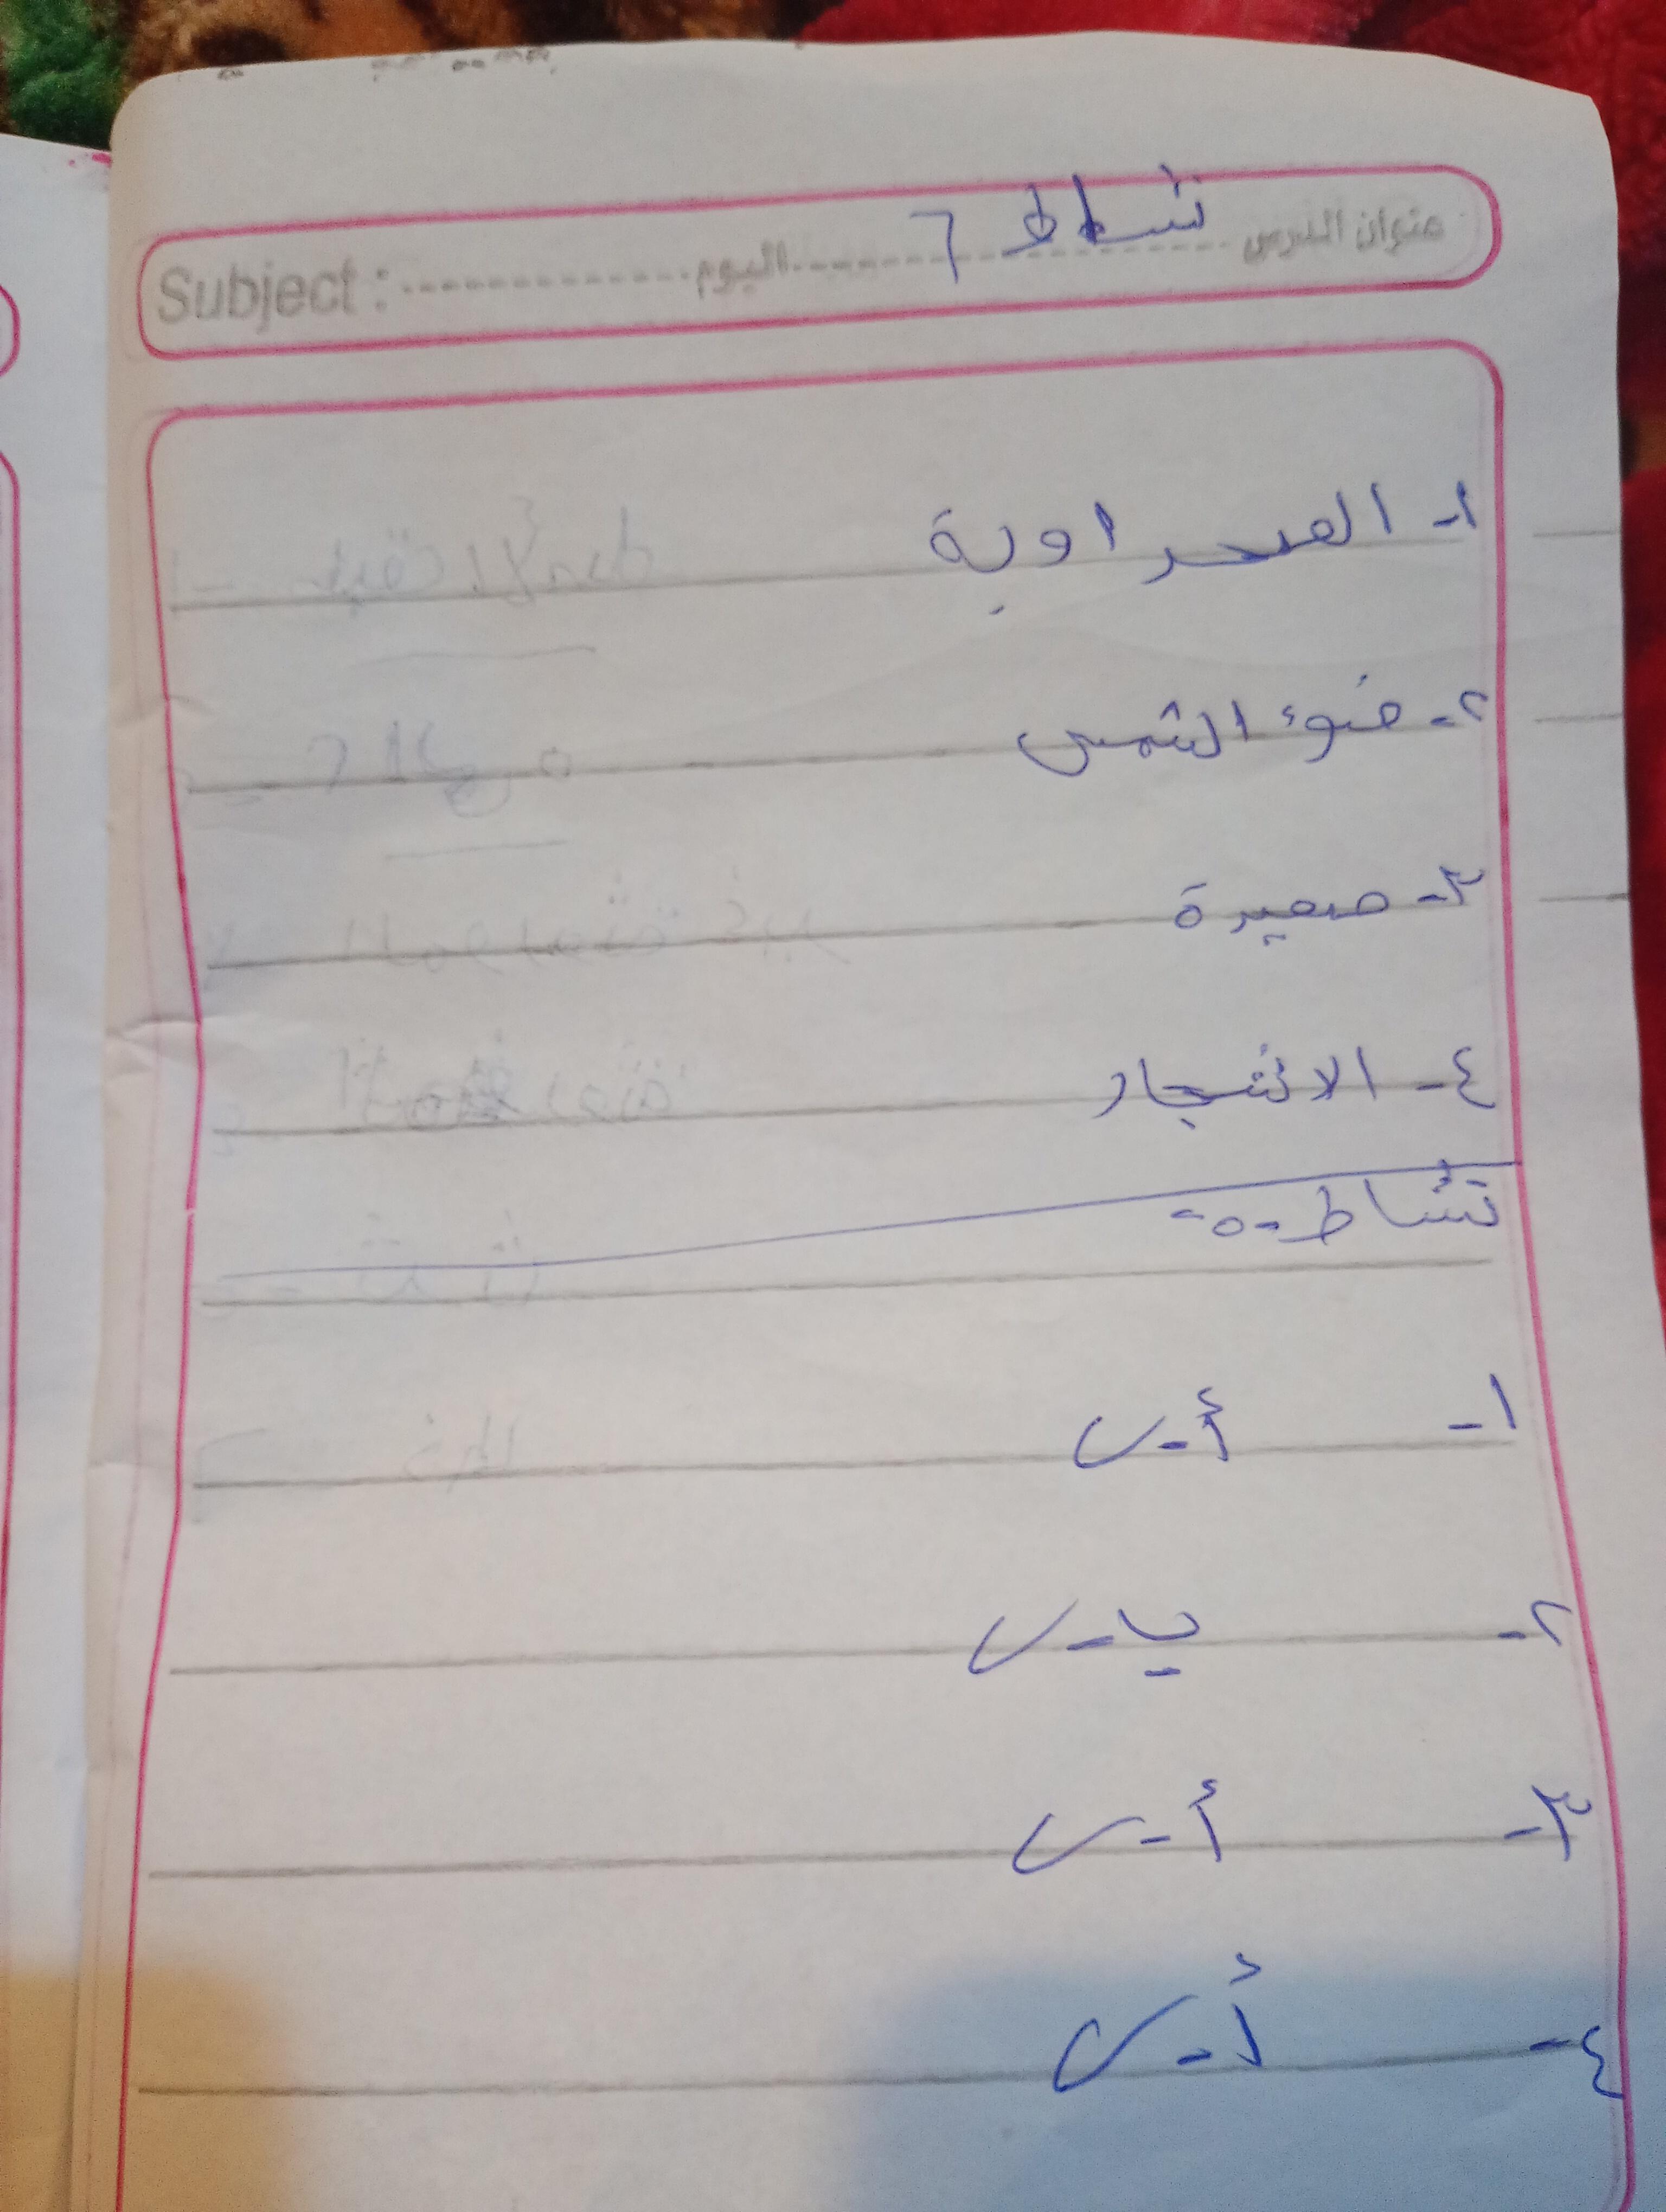 عنوان الدرس نشاط ٦ اليوم Subject :
١- الصحراوية
٢- ضوء الشمس
٣- صغيرة
٤- الاشجار
نشاط -٥-
١- أ-
٢- ب-
٣- أ-
٤- أ-